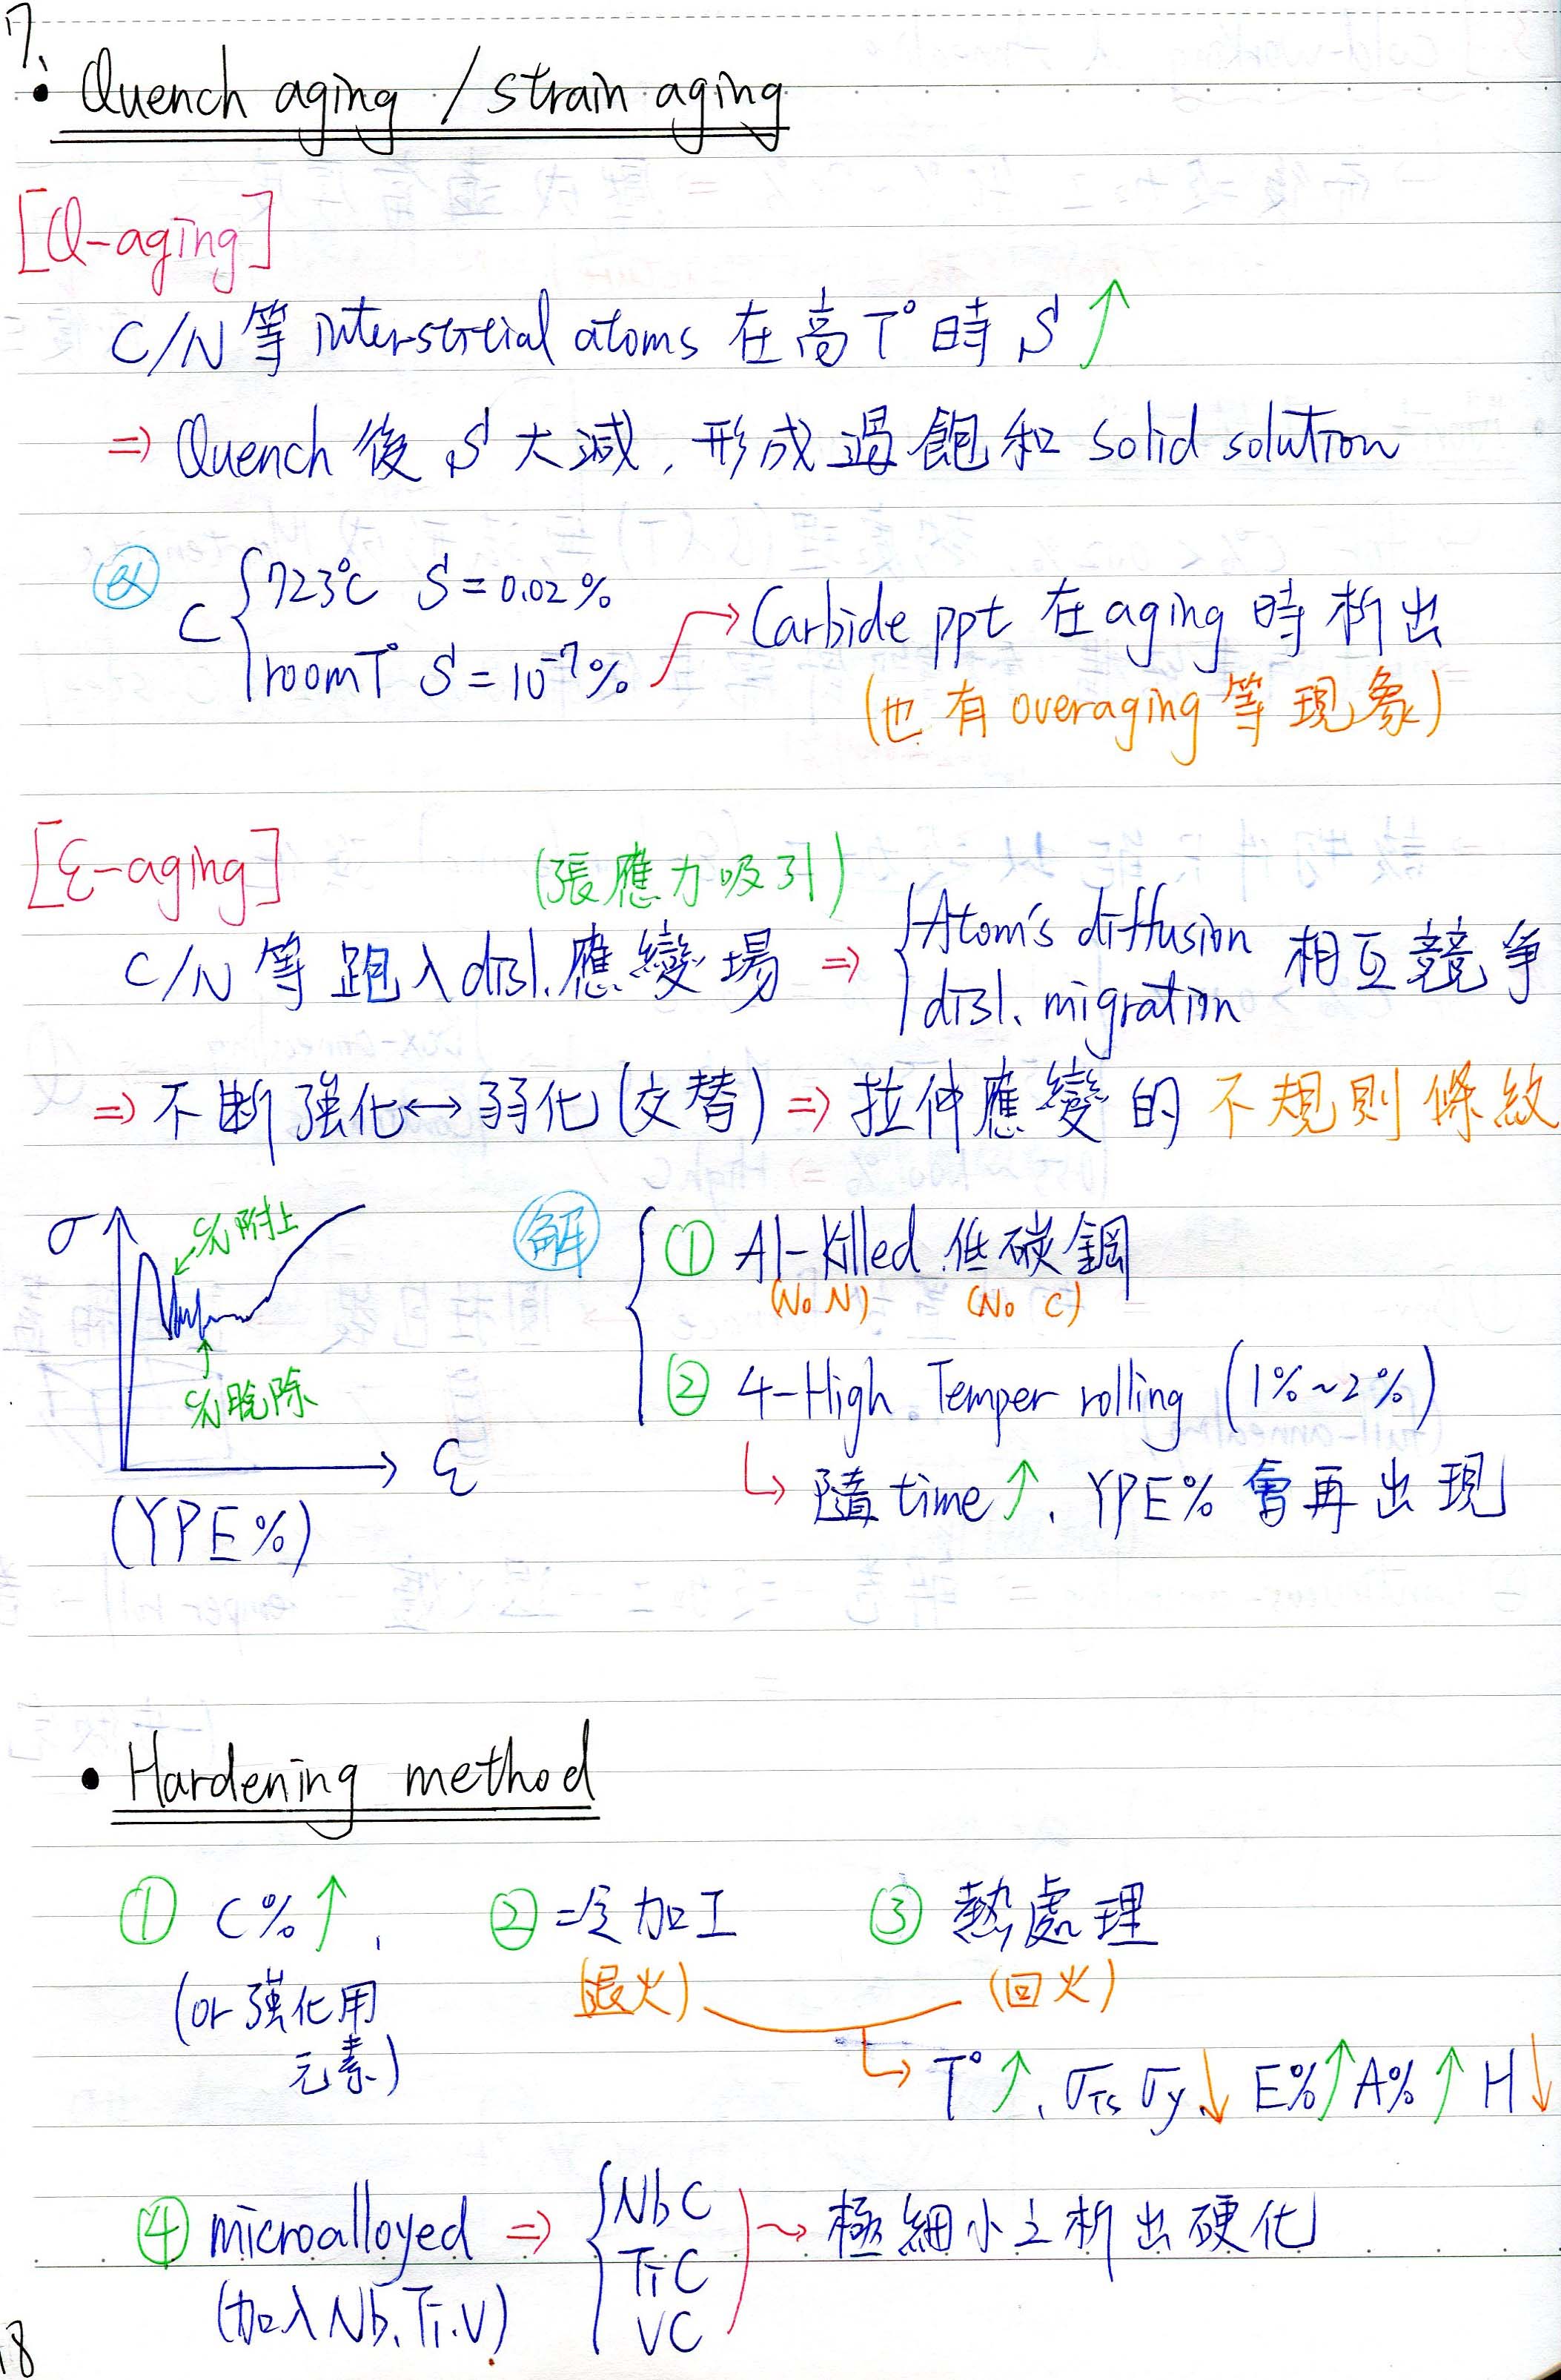 7.
• Quench aging / strain aging
[Q-aging]
C/N 等 interstitial atoms 在高T°時 S↑
⇒ Quench 後 S 大減, 形成過飽和 solid solution
ex C { 723°C S = 0.02%
room T° S = 10⁻⁷%
→ Carbide ppt 在 aging 時析出
(也有 overaging 等現象)
[ε-aging]
(張應力吸引)
C/N 等跑入 disl. 應變場 ⇒ { Atom's diffusion
disl. migration
相互競爭
⇒ 不斷強化↔弱化(交替) ⇒ 拉伸應變的不規則條紋
σ
C/N附上
C/N脫除
ε
(YPE%)
解 { ① Al-killed 低碳鋼
(No N) (No C)
② 4-High Temper rolling (1%~2%)
↳ 隨 time↑, YPE% 會再出現
• Hardening method
① C%↑, ② 冷加工 ③ 熱處理
(or 強化用
元素)
(退火) (回火)
↳ T°↑, σTS σy↓ E%↑ A%↑ H↓
④ microalloyed ⇒ { NbC
TiC
VC
→ 極細小之析出硬化
(加入Nb.Ti.V)
18